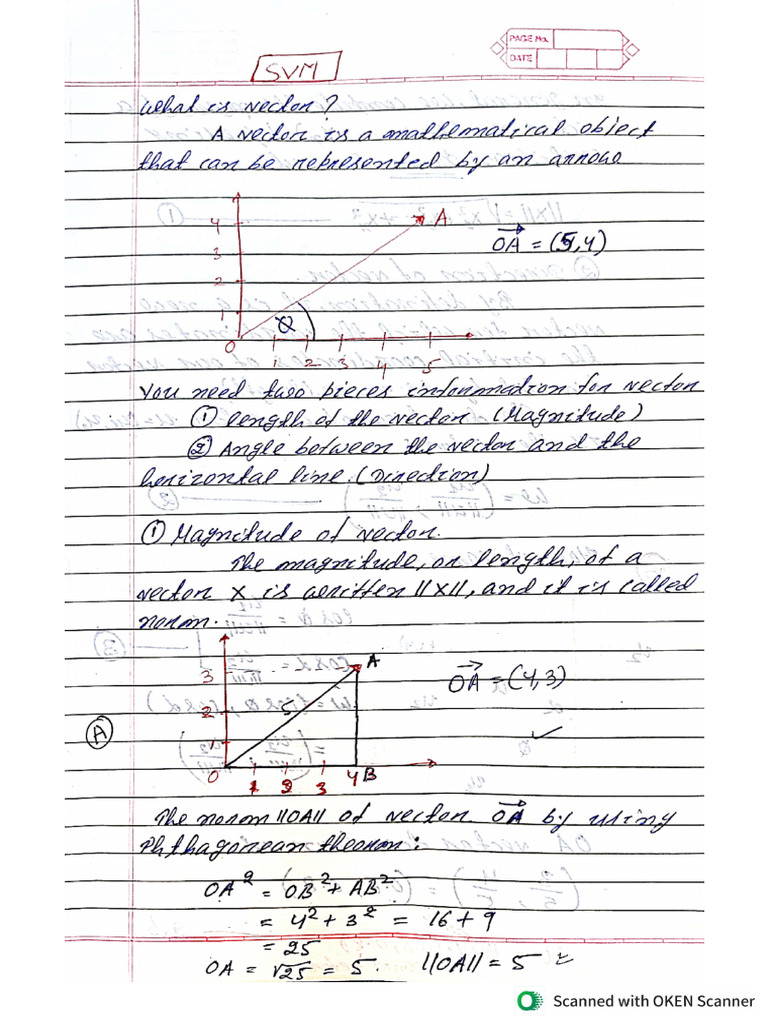 PAGE No.
DATE
SVM
What is vector?
A vector is a mathematical object
that can be represented by an arrow
4
A
OA = (5,4)
3
2
1
θ
0
1 2 3 4 5
You need two pieces information for vector
① length of the vector (Magnitude)
② Angle between the vector and the
horizontal line. (Direction)
① Magnitude of vector.
The magnitude, or length, of a
vector X is written ||X||, and it is called
norm.
A
3
OA = (4,3)
2
5
A
1
0
1 2 3 4B
The norm ||OA|| of vector OA by using
Phthagorean theorom:
OA² = OB² + AB²
= 4² + 3² = 16 + 9
= 25
OA = √25 = 5. ||OA|| = 5
Scanned with OKEN Scanner